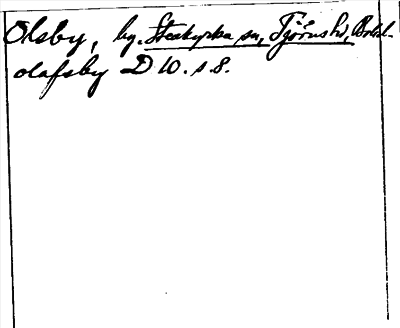 Olsby, by. Stenkyrka sn, Tjörns hd, Bohsl.
olafsby D 10. s 8.